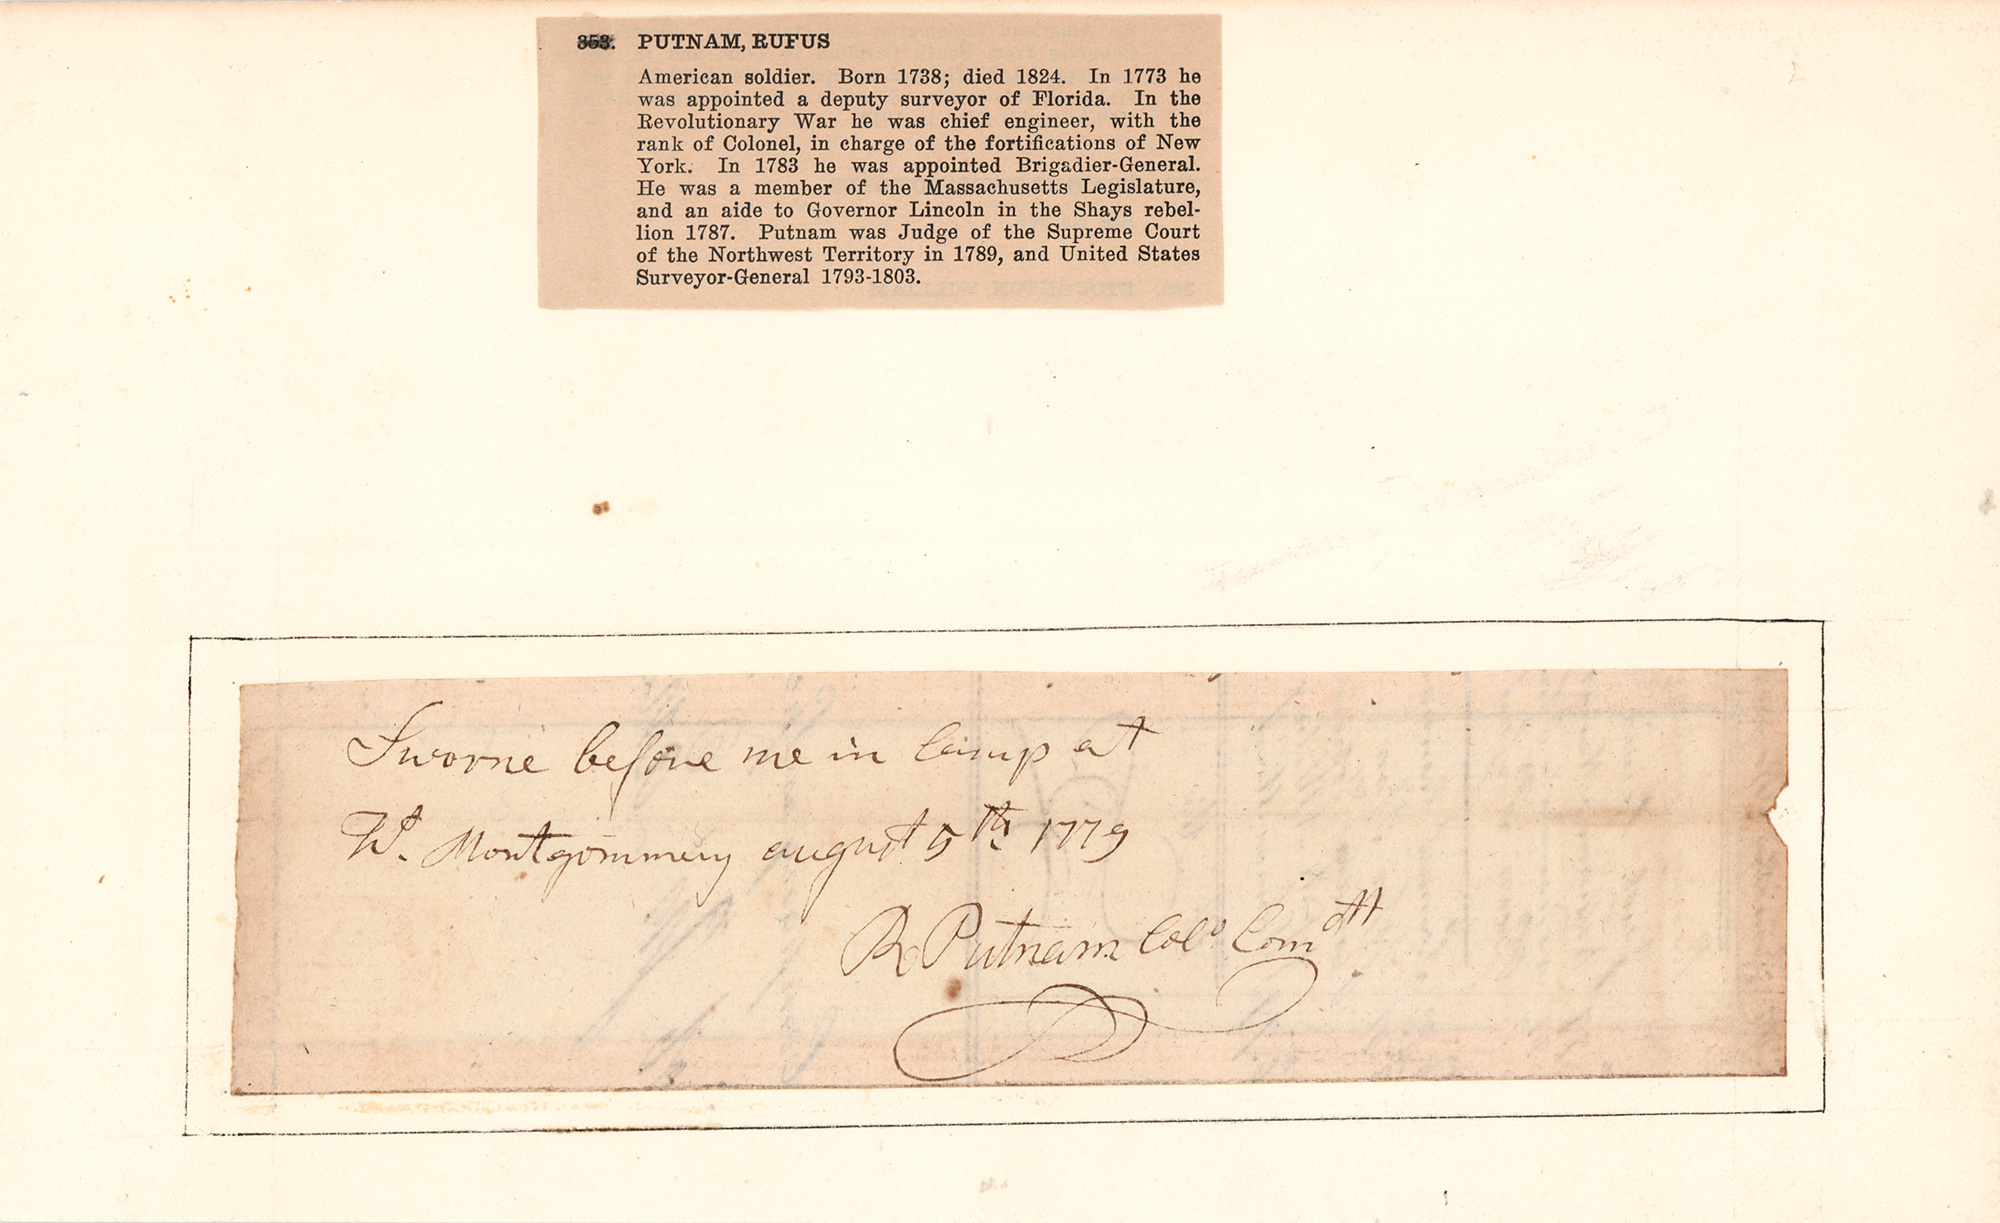 353. PUTNAM, RUFUS
American soldier. Born 1738; died 1824. In 1773 he
was appointed a deputy surveyor of Florida. In the
Revolutionary War he was chief engineer, with the
rank of Colonel, in charge of the fortifications of New
York. In 1783 he was appointed Brigadier-General.
He was a member of the Massachusetts Legislature,
and an aide to Governor Lincoln in the Shays rebel-
lion 1787. Putnam was Judge of the Supreme Court
of the Northwest Territory in 1789, and United States
Surveyor-General 1793-1803.
Sworne before me in Camp at
Montgommery august 5th 1779
R Putnam Colo Comdtt